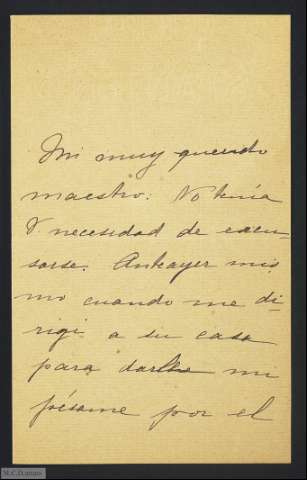 Mi muy querido
maestro: No tenía
V. necesidad de excu-
sarse. Anteayer mis
mo cuando me di-
rigí a su casa
para darle mi
pésame por el